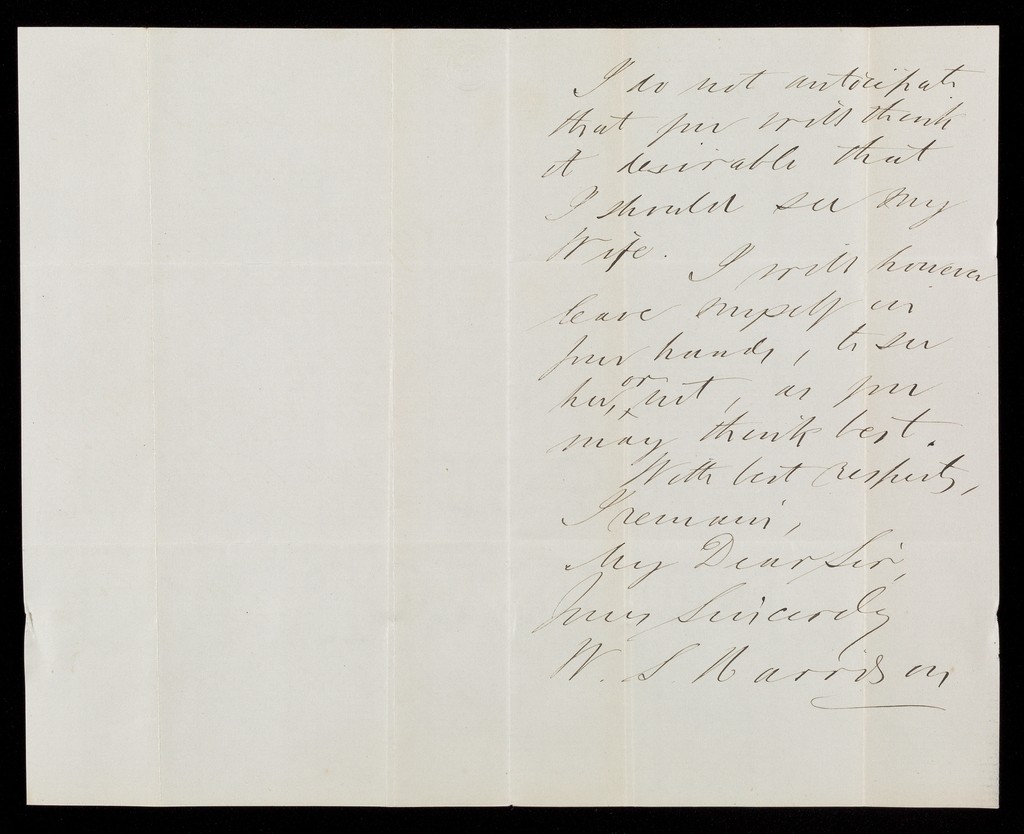 I do not anticipate
that you will think
it desirable that
I should see my
Wife. I will however
leave myself in
your hands, to see
her, or not, as you
may think best.
With best respects,
I remain,
My Dear Sir,
Yours Sincerely
W. S. Harrison